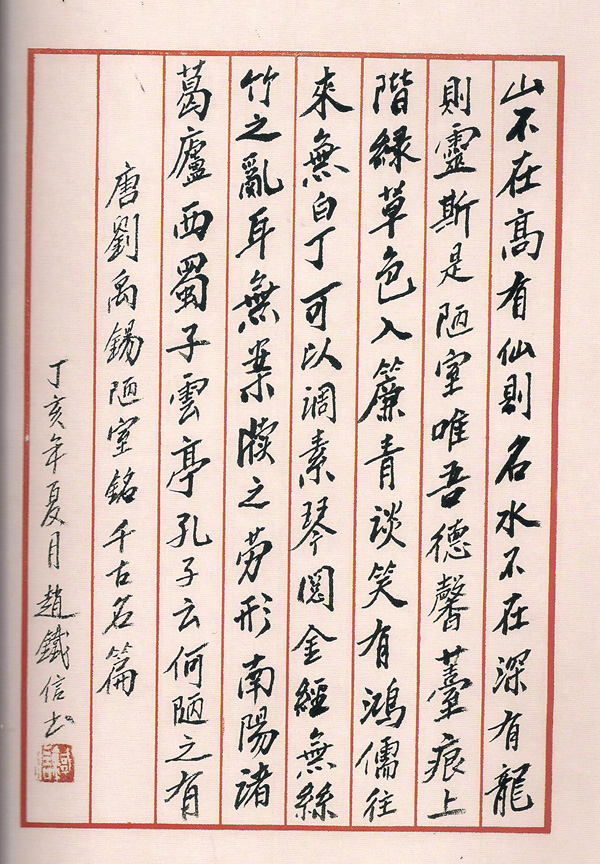 山不在高有仙則名水不在深有龍
則靈斯是陋室唯吾德馨薹痕上
階綠草色入簾青談笑有鴻儒往
來無白丁可以調素琴閱金經無絲
竹之亂耳無案牘之勞形南陽諸
葛廬西蜀子雲亭孔子云何陋之有
唐劉禹錫陋室銘千古名篇
丁亥年夏月趙鐵信书